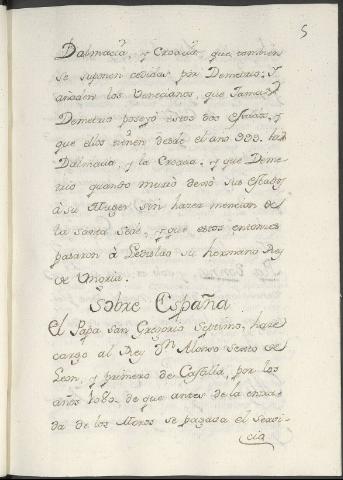 5
Dalmacia, y Croacia, que tambien
se suponen cedidas por Demetrio. Y
añaden los Venecianos que Jamas
Demetrio poseyó estos dos Estados, y
que ellos tienen desde el año 999. la
Dalmacia, y la Croacia, y que Deme-
trio quando murió dexó sus Estados
à su Muger sin hazer mencion de
la santa Sede, y que estos entonces
pasaron à Ladislao su hermano Rey
de Ungria.
Sobre España
El Papa San Gregorio Septimo, haze
cargo al Rey Dn Alonso Sexto de
Leon, y primero de Castilla, por los
años 1080 de que antes de la entra-
da de los Moros se pagava el servi-
cio